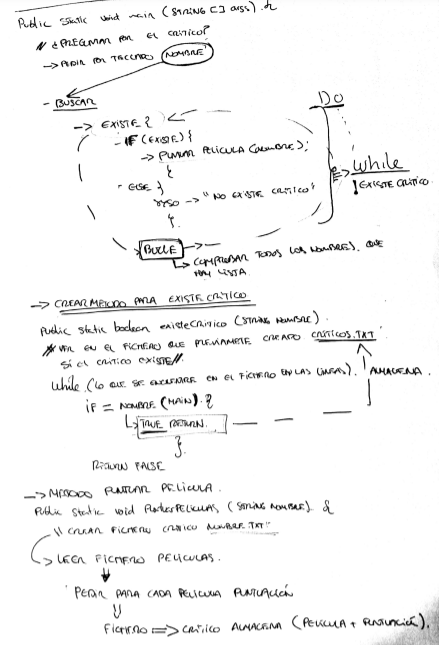 Public static void main (STRING [] args). {
// ¿PREGUNTAR POR EL CRITICO?
-> PEDIR POR TECLADO NOMBRE
- BUSCAR
DO
-> EXISTE {
- IF (EXISTE) {
-> PUNTUAR PELICULA (NOMBRE);
}
ELSE }
SYSO -> "NO EXISTE CRITICO"
}.
While
! EXISTE CRITICO
BUCLE ->
COMPROBAR TODOS LOS NOMBRES. QUE
HAY LISTA
-> CREAR METODO PARA EXISTE CRITICO
Public static boolean existeCritico (STRING NOMBRE).
// VER EN EL FICHERO QUE PREVIAMETE CREADO CRITICOS.TXT
SI EL CRITICO EXISTE //.
While. (LO QUE SE ENCUENTRE EN EL FICHERO EN LAS LINEAS). ALMACENA.
IF = NOMBRE (MAIN). {
TRUE RETURN.
}.
RETURN FALSE
-> METODO PUNTUAR PELICULA.
Public static void PuntuarPELICULAS (STRING NOMBRE). {
// CREAR FICHERO CRITICO NOMBRE.TXT"
LEER FICHERO PELICULAS.
PEDIR PARA CADA PELICULA PUNTUACIÓN
FICHERO => CRITICO ALMACENA (PELICULA + PUNTUACIÓN).